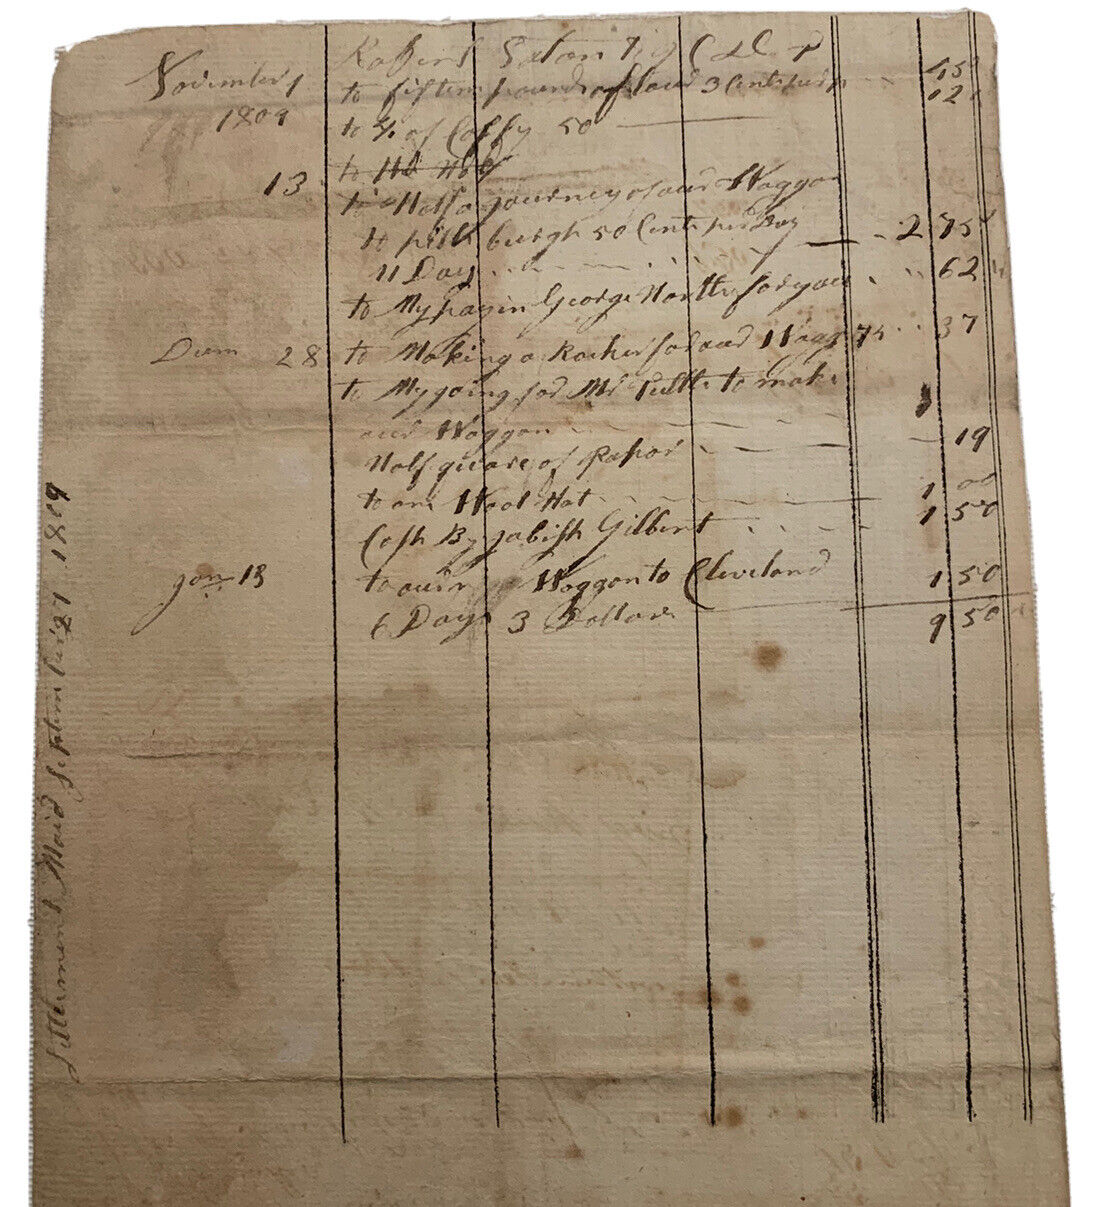 November 1
1809
to fifteen pounds of 3 Cents per 45
to ¼ of Coffy 50 12
to
13 to Half a journey of our Waggon
to pittsburgh 50 Cents per Day 2 75
11 Day
to My paying George North for you 62
28 to Making a for our Wagg 75 37
to My going for Mr to make
our Waggon
Half quare of Papor 19
to one Wool Hat 1 00
Cash By jabish Gilbert 1 50
jan 13 to our Waggon to Cleveland 1 50
6 Days 3 Dollars 9 50
Settlement Maid September 27 1809